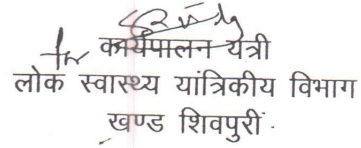 कार्यपालन यंत्री
लोक स्वास्थ्य यांत्रिकीय विभाग
खण्ड शिवपुरी